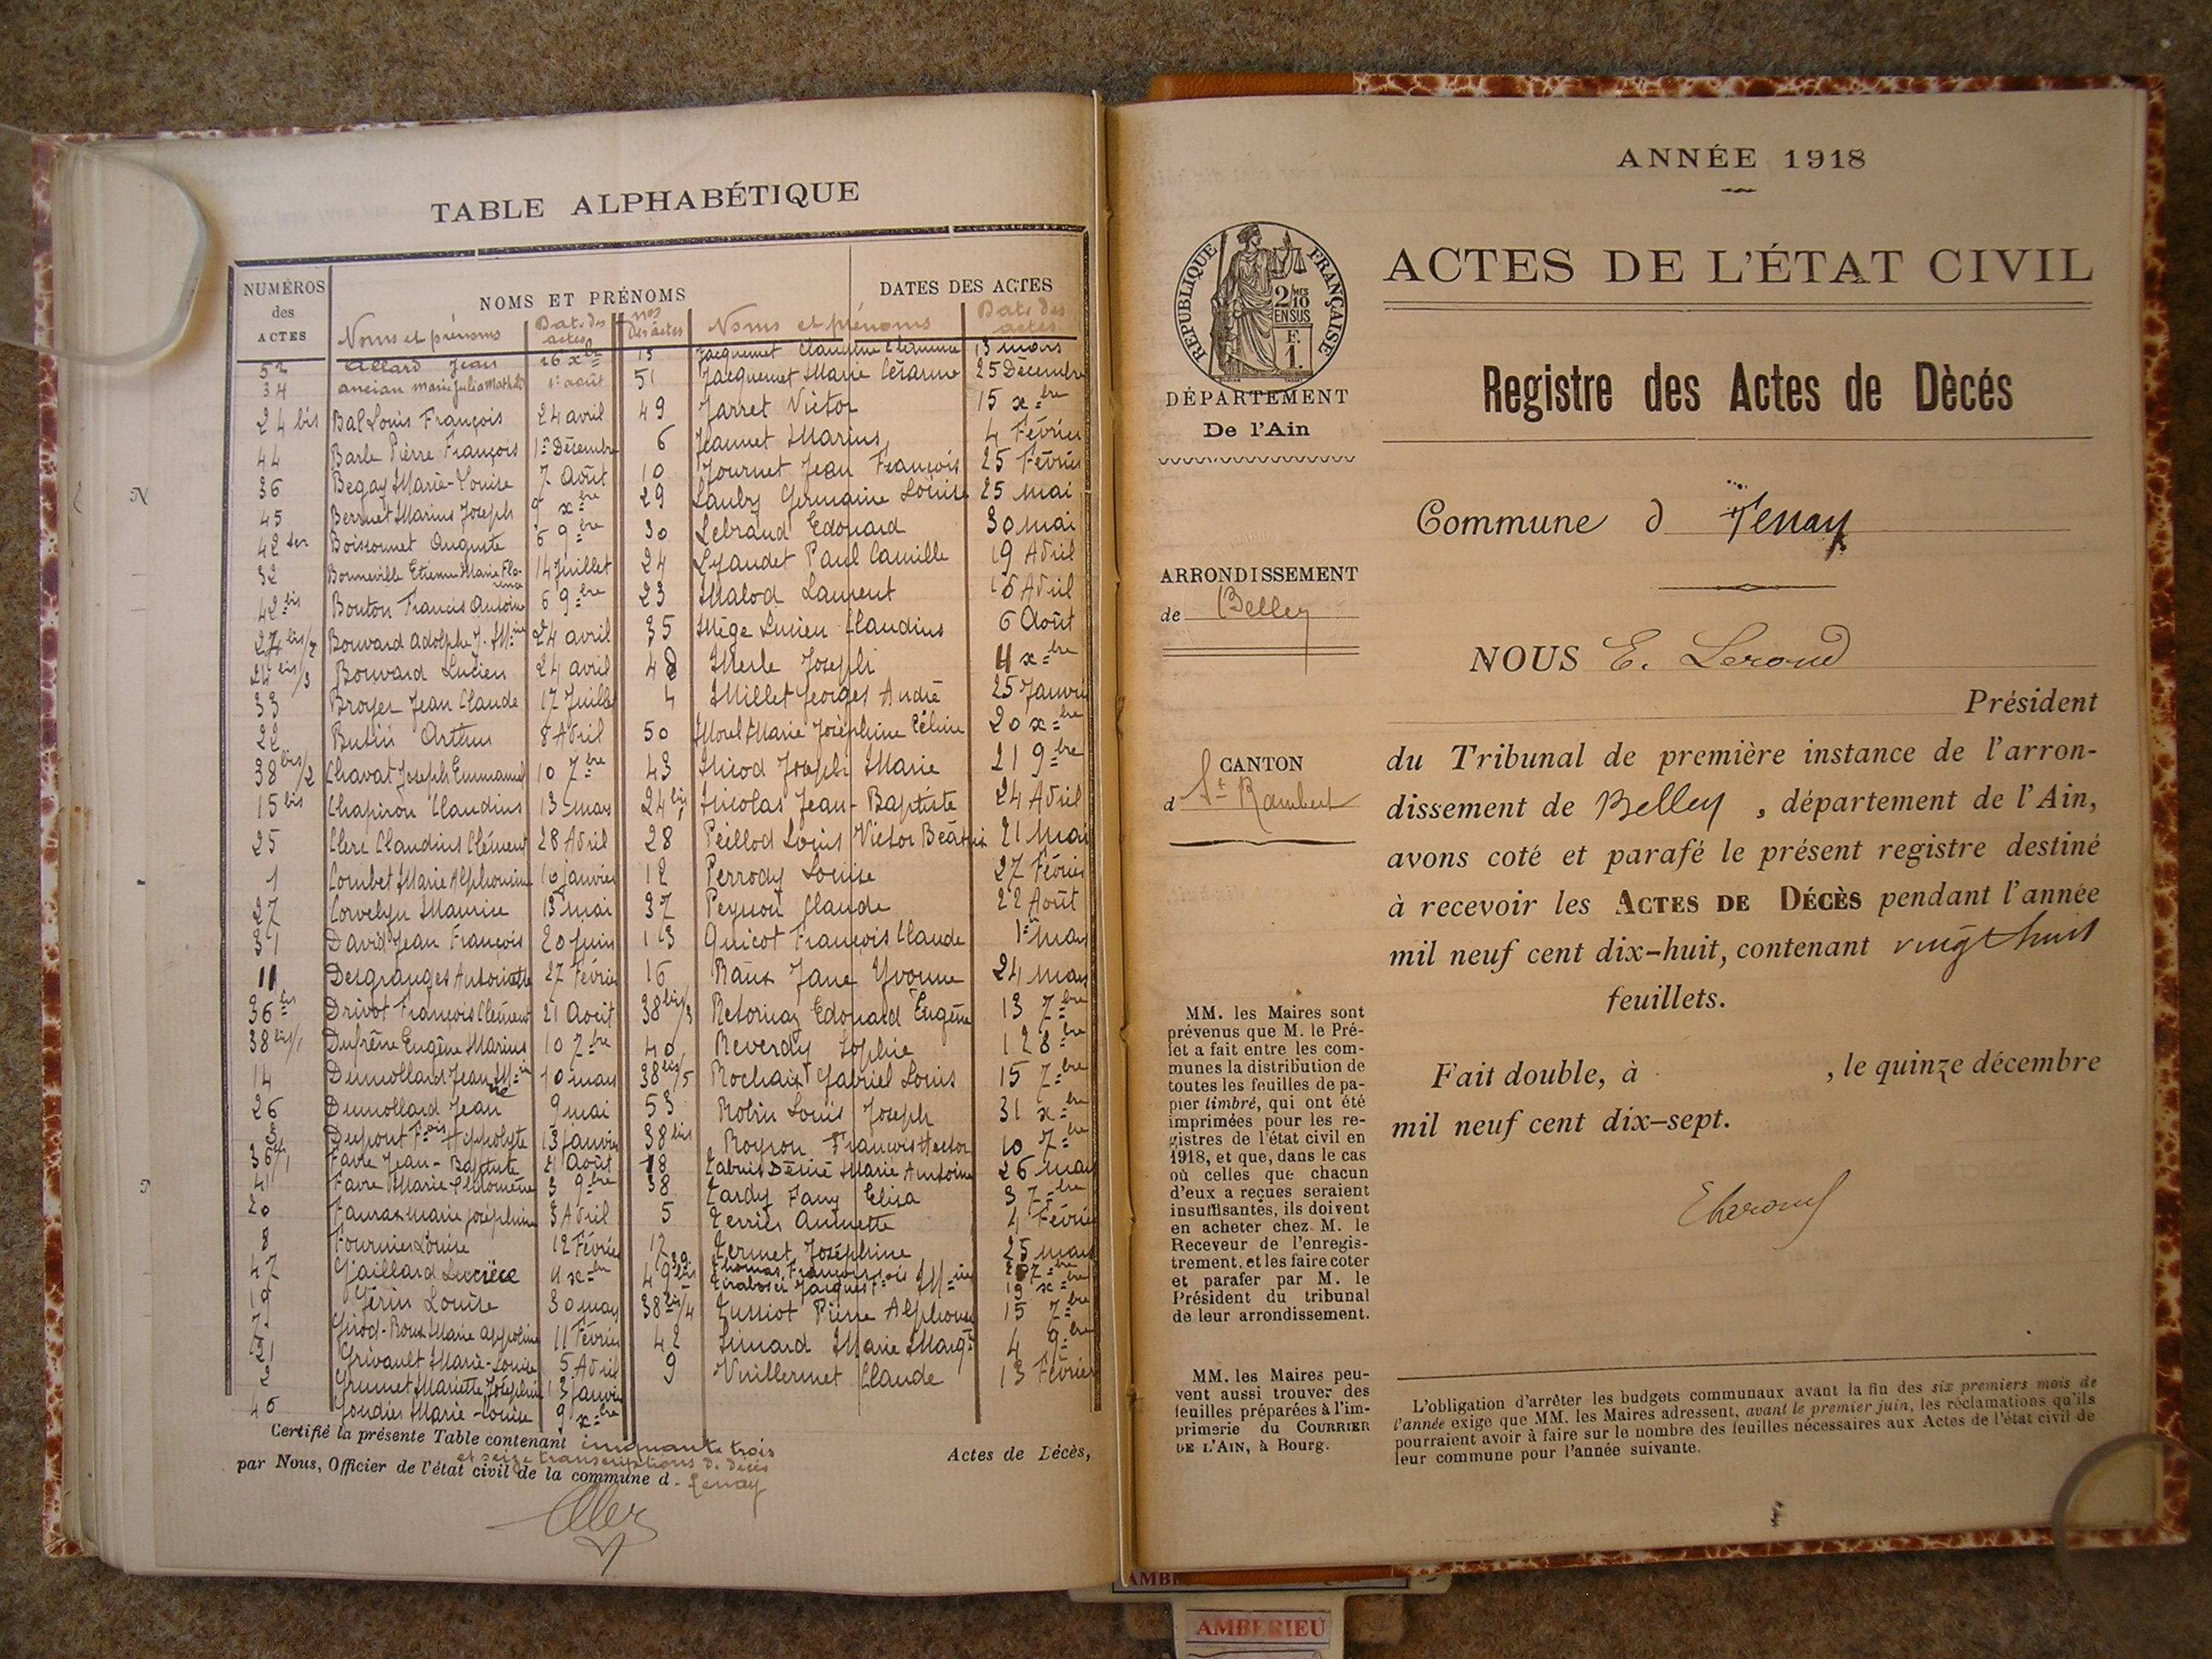 TABLE ALPHABÉTIQUE
NUMÉROS des ACTES
NOMS ET PRÉNOMS
DATES DES ACTES
Noms et prénoms Dat. des actes nos des actes Noms et prénoms Date des actes
52 Allard Jean 26 xbre 15 Jacquemet Claudine 13 mars
34 ancian marie Julia 1er août 51 Jacquemet Marie Césarine 25 Décembre
24 bis Bal Louis François 24 avril 49 Jarret Victor 15 xbre
44 Barle Pierre François 1er Décembre 6 Jeannet Marius 4 Février
36 Begay Marie-Louise 7 Août 10 Journet Jean François 25 Février
45 Berthet Marius Joseph 9 xbre 29 Lauby Germaine Louise 25 mai
42 ter Boissonnet Auguste 6 9bre 30 Lebrand Edouard 30 mai
32 Bonneville Etienne Marie 14 Juillet 24 Lyaudet Paul Camille 19 Avril
42 bis Bouton Francis Antoine 6 9bre 23 Malod Laurent 16 Avril
24 bis/2 Bouvard Adolphe J. Min 24 avril 35 Mège Lucien Claudius 6 Août
24 bis/3 Bouvard Lucien 24 avril 48 Merle Joseph 11 xbre
33 Broyer Jean Claude 17 Juillet 4 Millet Georges André 25 Janvier
22 Butin Arthur 8 Avril 50 Morel Marie Joséphine Céline 20 xbre
38 bis/2 Chavat Joseph Emmanuel 10 7bre 43 Nicod Joseph Marie 21 9bre
15 bis Chapiron Claudius 13 mars 24 bis Nicolas Jean-Baptiste 24 Avril
25 Clerc Claudius Clément 28 Avril 28 Peillod Louis Victor Béatrix 21 Mai
1 Combet Marie Alphonsine 10 janvier 12 Perrody Louise 27 Février
27 Corvelyn Maurice 13 mai 37 Peysson Claude 22 Août
31 David Jean François 20 juin 13 Quicot François Claude 1er Mars
11 Desgranges Antoinette 27 Février 16 Raux Jane Yvonne 24 mars
36 bis Drivot François Clément 21 Août 38 bis/3 Retornaz Edouard Eugène 13 7bre
38 bis/1 Dufrêne Eugène Marius 10 7bre 40 Reverdy Sophie 12 8bre
14 Dumollard Jean 10 mars 38 bis/5 Rochaix Gabriel Louis 15 7bre
26 Dumollard Jean 9 mai 53 Robin Louis Joseph 31 xbre
3 Dupont Fois Hippolyte 13 janvier 38 bis Royron François Hector 10 7bre
36 Favre Jean-Baptiste 21 Août 18 Désiré Marie Antoine 26 mars
41 Favre Marie Philomène 3 9bre 38 Tardy Fany Elisa 3 7bre
20 marie joséphine 3 Avril 5 Terrier Annette 4 Février
8 Fournier Louise 12 Février 17 Termet Joséphine 25 mars
47 Gaillard Lucièce 11 xbre 39 Thomas François
49 bis Tirabosci Jacques 19 xbre
19 Gérin Louise 30 mars 38 bis/4 Tussiot Pierre Alphonse 15 7bre
7 Girod-Roux Marie Appoline 11 Février 42 Marie 4 9bre
21 Grivault Marie-Louise 5 Avril 9 Vuillermet Claude 13 Février
2 Grumet Mariette Joséphine 13 Janvier
46 Goudier Marie-Louise 9 xbre
Certifié la présente Table contenant cinquante trois Actes de Décès,
et seize transcriptions d. décès
par Nous, Officier de l'état civil de la commune d. Tenay
ANNÉE 1918
RÉPUBLIQUE FRANÇAISE
2/10 MES EN SUS
F. 1.
ACTES DE L'ÉTAT CIVIL
Registre des Actes de Dècés
DÉPARTEMENT
De l'Ain
Commune d Tenay
ARRONDISSEMENT
de Belley
NOUS E. Leroud
Président
CANTON
d St Rambert
du Tribunal de première instance de l'arron-
dissement de Belley, département de l'Ain,
avons coté et parafé le présent registre destiné
à recevoir les ACTES DE DÉCÈS pendant l'année
mil neuf cent dix-huit, contenant vingt huit
feuillets.
Fait double, à , le quinze décembre
mil neuf cent dix-sept.
MM. les Maires sont
prévenus que M. le Pré-
fet a fait entre les com-
munes la distribution de
toutes les feuilles de pa-
pier timbré, qui ont été
imprimées pour les re-
gistres de l'état civil en
1918, et que, dans le cas
où celles que chacun
d'eux a reçues seraient
insuffisantes, ils doivent
en acheter chez M. le
Receveur de l'enregis-
trement, et les faire coter
et parafer par M. le
Président du tribunal
de leur arrondissement.
MM. les Maires peu-
vent aussi trouver des
feuilles préparées à l'im-
primerie du COURRIER
DE L'AIN, à Bourg.
L'obligation d'arrêter les budgets communaux avant la fin des six premiers mois de
l'année exige que MM. les Maires adressent, avant le premier juin, les réclamations qu'ils
pourraient avoir à faire sur le nombre des feuilles nécessaires aux Actes de l'état civil de
leur commune pour l'année suivante.
AMBERIEU